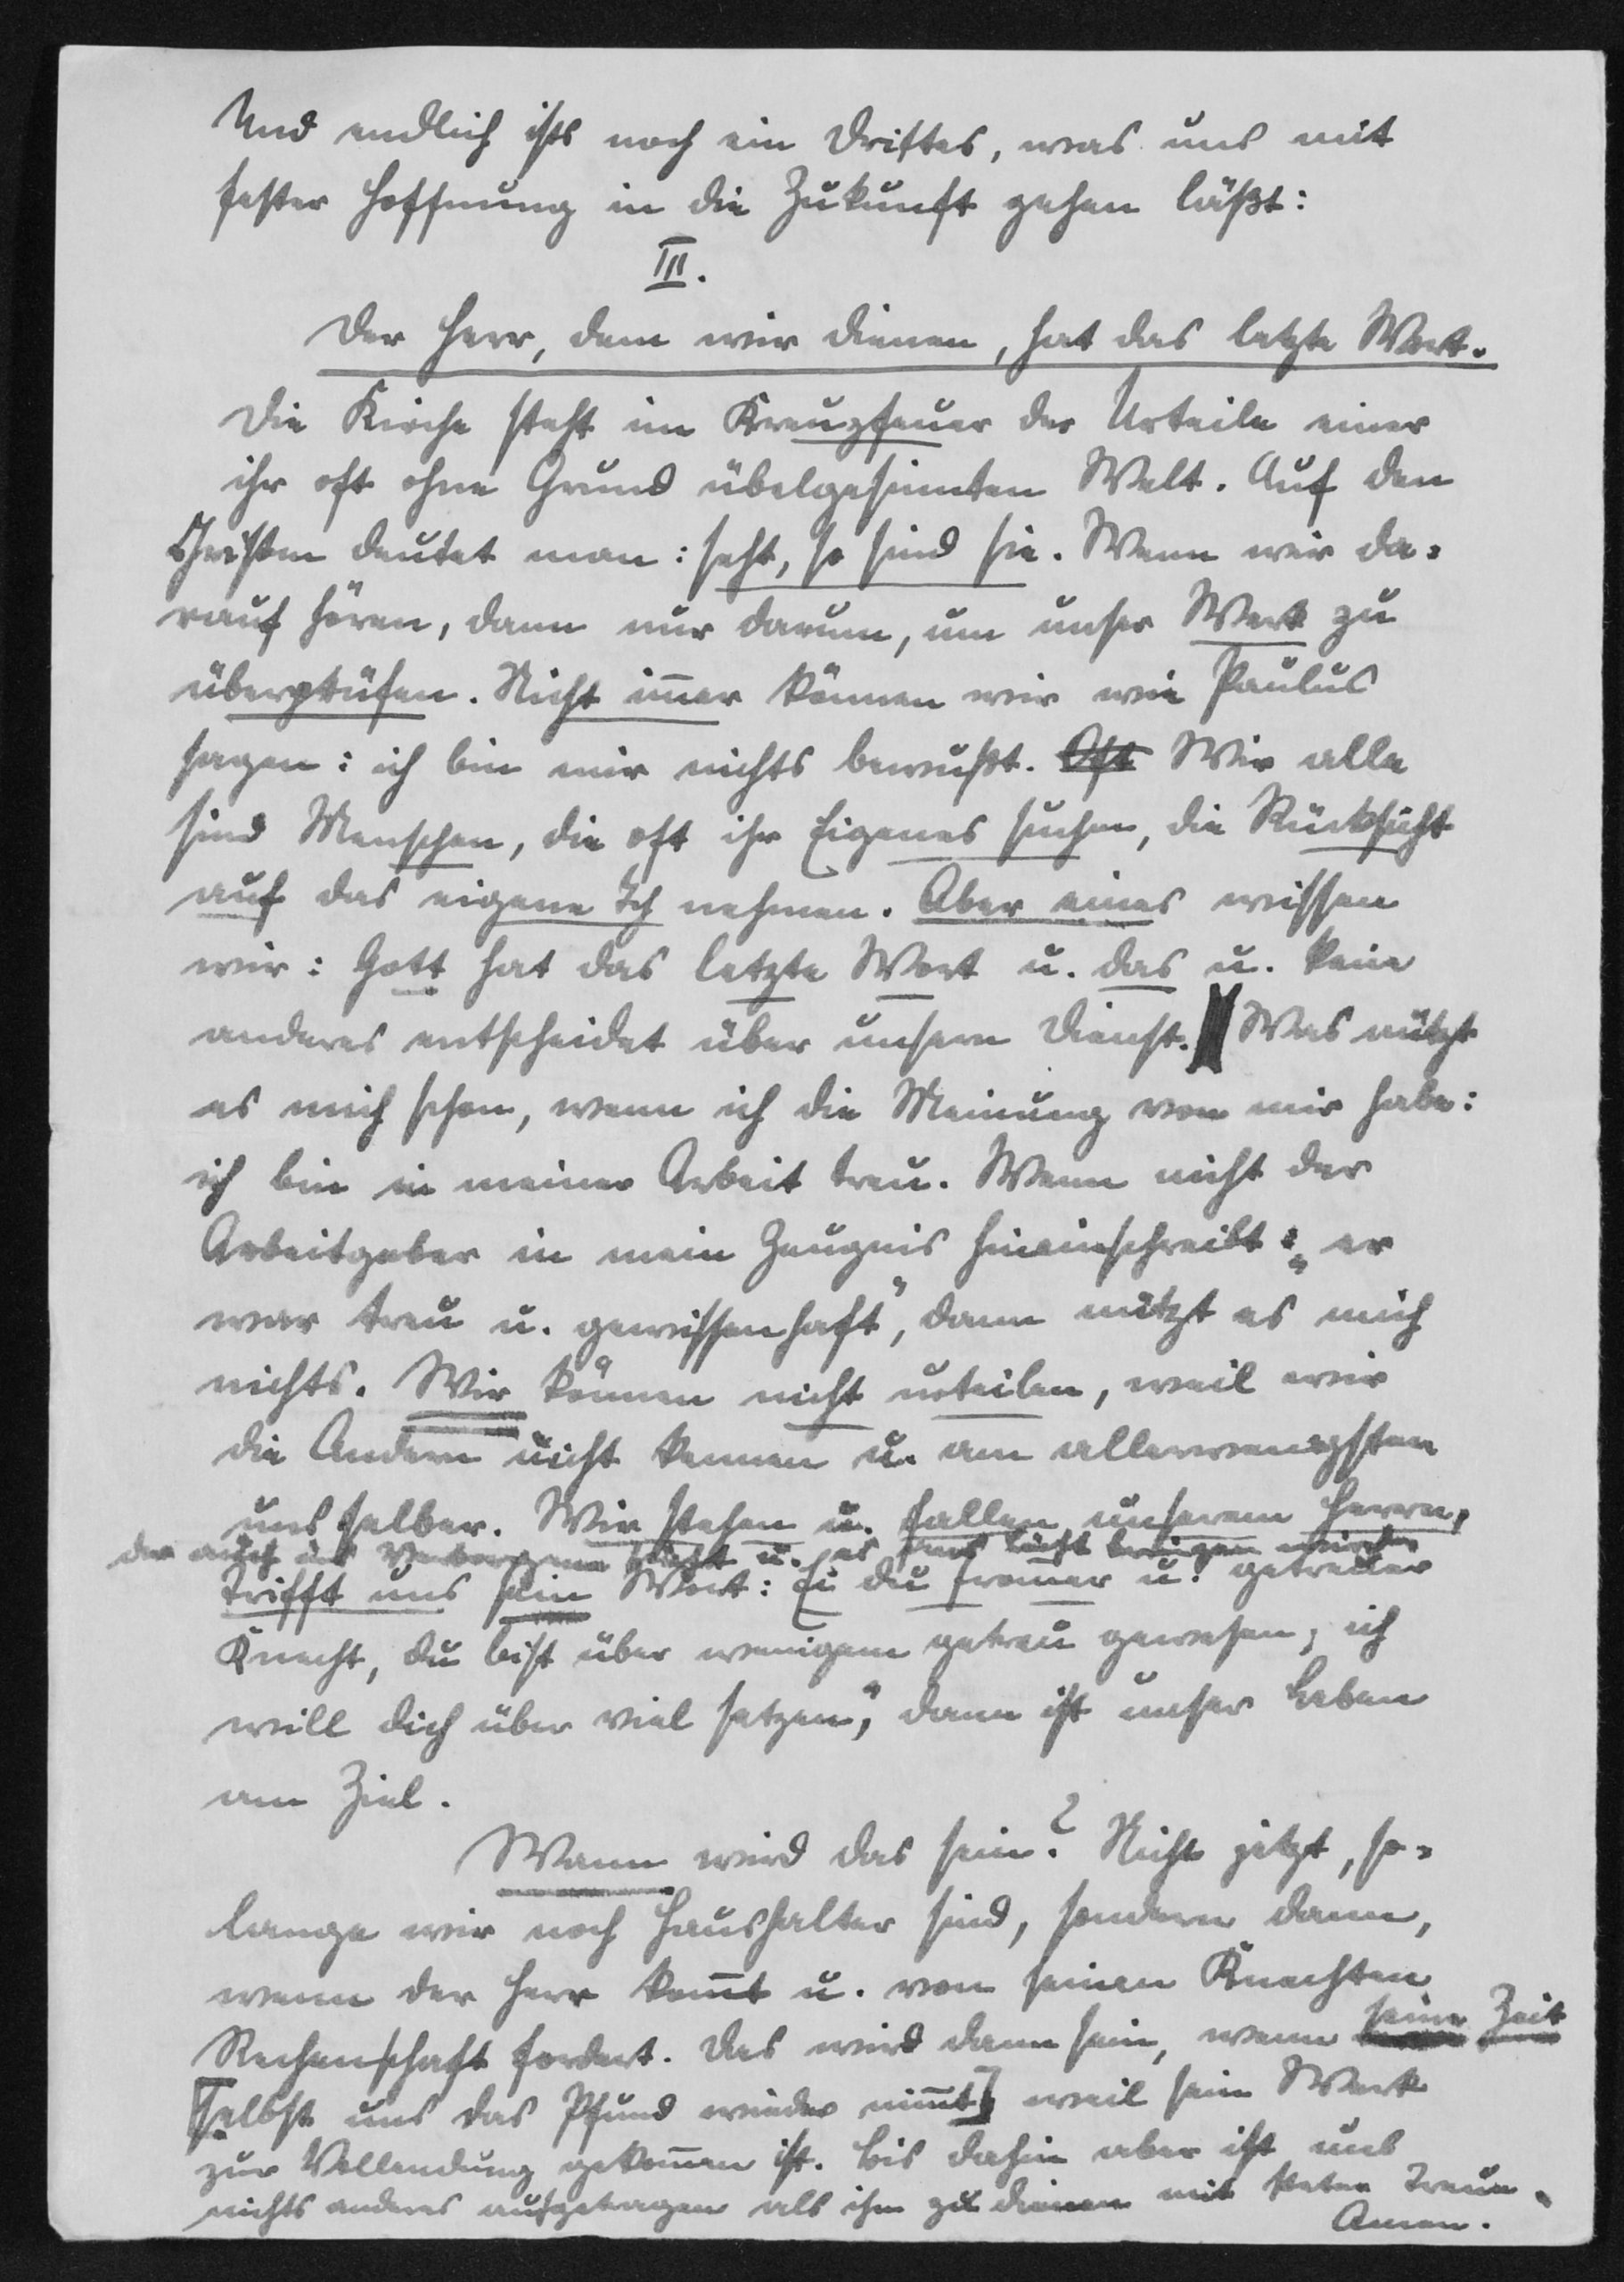 Und endlich ists noch ein Drittes, was uns mit
fester Hoffnung in die Zukunft gehen läßt:
III.
Der Herr, dem wir dienen, hat das letzte Wort.
Die Kirche steht im Kreuzfeuer der Urteile einer
ihr oft ohne Grund übelgesinnten Welt. Auf den
Christen deutet man: seht, so sind sie. Wenn wir da-
rauf hören, dann nur darum, um unser Werk zu
überprüfen. Nicht im̅er können wir wie Paulus
sagen: ich bin mir nichts bewußt. Oft Wir alle
sind Menschen, die oft ihr Eigenes suchen, die Rücksicht
auf das eigene Ich nehmen. Aber eines wissen
wir: Gott hat das letzte Wort u. das u. kein
anderes entscheidet über unsern Dienst. Was nützt
es mich schon, wenn ich die Meinung von mir habe:
ich bin in meiner Arbeit treu. Wenn nicht der
Arbeitgeber in mein Zeugnis hineinschreibt: „er
war treu u. gewissenhaft", dann nützt es mich
nichts. Wir können nicht urteilen, weil wir
die Andern nicht kennen u. am allerwenigsten
uns selber. Wir stehen u. fallen unserem Herrn,
der auch ins Verborgene sieht u. es ans Licht bringen wird
trifft uns sein Wort: Ei du from̅er u. getreuer
Knecht, du bist über wenigem getreu gewesen, ich
will dich über viel setzen", dann ist unser Leben
am Ziel.
Wann wird das sein? Nicht jetzt, so-
lange wir noch Haushalter sind, sondern dann,
wenn der Herr kom̅t u. von seinen Knechten
Rechenschaft fordert. Das wird dann sein, wenn seine Zeit
[selbst uns das Pfund wieder nim̅t] weil sein Werk
zur Vollendung gekom̅en ist. Bis dahin aber ist uns
nichts anderes aufgetragen als ihm zu dienen mit steter Treue.
Amen.